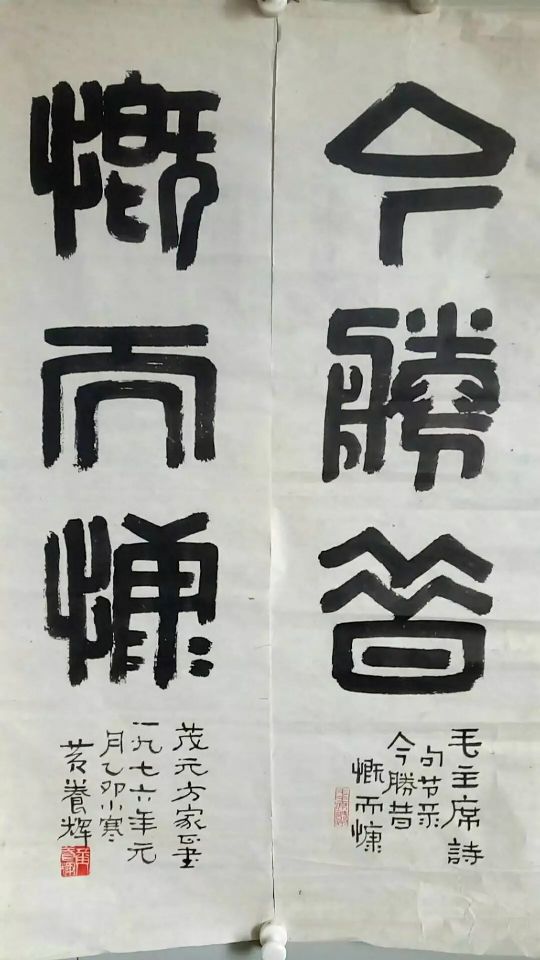 今勝昔
毛主席詩
句节录
今勝昔
慨而慷
慨而慷
茂元方家正書
一九七六年元
月乙卯小寒
黄養輝